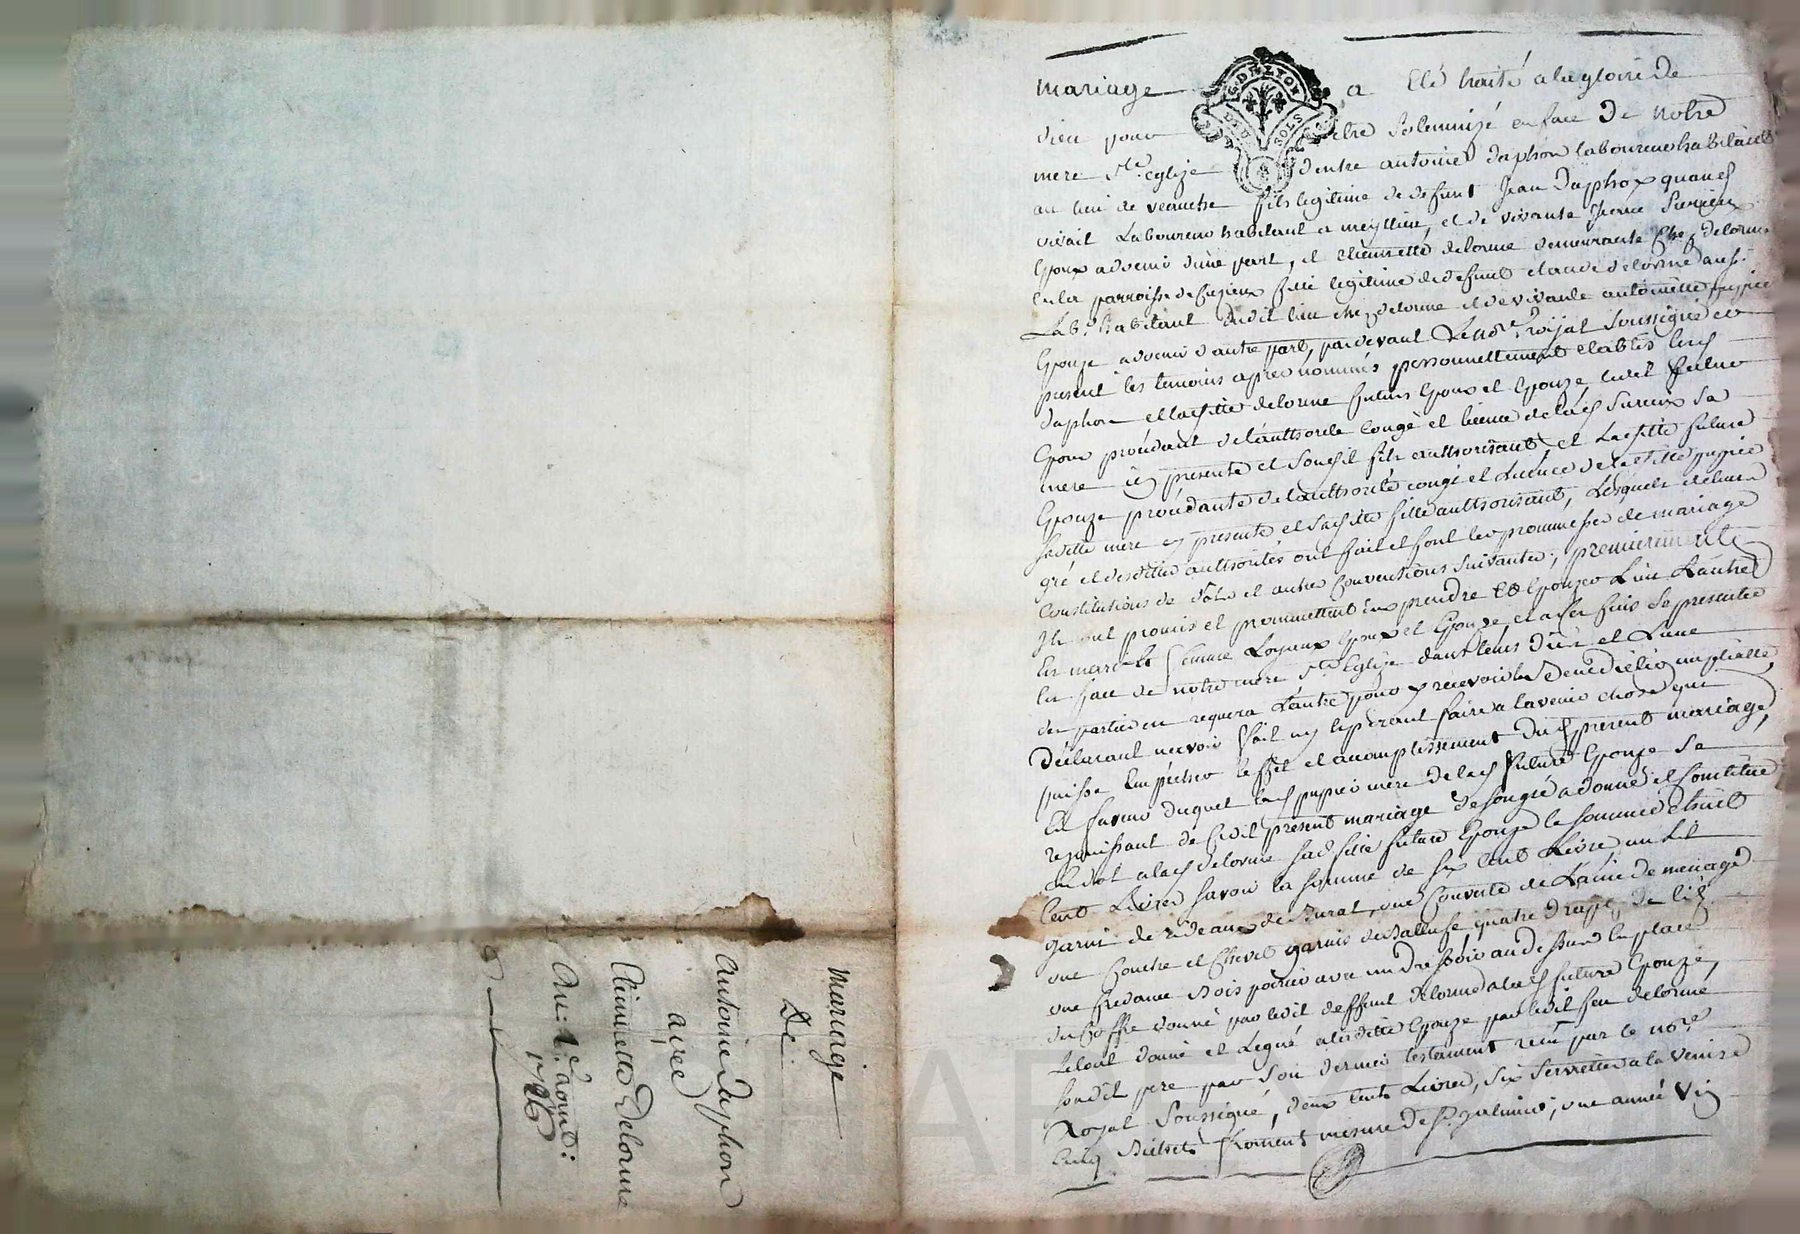 mariage a Eté traité a la gloire de
G. DE LYON
DEU SOLS
dieu pour etre Solemnizé en face De Notre
mere Ste. eglize Dentre antoine Daphon laboureur habitant
au lieu de fils legitime de defunt Jean Daphon quand
vivait Laboureur habitant a meyllieu, et de vivante
Epoux advenir d'une part, et Etiennette delorme demeurante chez delorme
en la parroisse de fille legitime de defunt claude delorme aussi
Lab.r habitant dudit lieu chez delorme et de vivante antoinette pupier
Epouze advenir d'autre part, pardevant Le nore. royal Soussigné et
present les temoins apres nommés personnellement etablis lesd
daphon et lad fille delorme futurs Epoux et Epouze, led futur
Epoux procedant de l'authorité congé et licence de lad sa
mere icy presente et soud fils authorisant, et Lad fille future
Epouze procedante de l'authorité congé et licence de ladite pupier
sadite mere icy presente et sad fille authorisant, Lesquels de leur
gré et desdites authorités ont fait et font les promesses de mariage
Constitutions de dot et autres Conventions suivantes; premierement
Ils ont promis et promettent Eux prendre et Epouzer L'un L'autre
En mari et femme Loyaux Epoux et Epouze, et a ces fins se presenter
En face de notre mere Ste Eglize dans leurs et L'une
des parties en requera L'autre pour y recevoir la Benediction nuptialle
Declarant n'avoir fait ny esperant faire a l'avenir chose qui
puisse Empecher l'effet et accomplissement dud present mariage,
En faveur duquel lad pupier mere de lad future Epouze se
rejouissant de Cedit present mariage de son gré a donné et constitué
En dot a lad delorme sad fille future Epouze la somme d'huit
Cent Livres savoir la somme de six Cent Livres un Lit
garni de rideaux de Burat, une Couverte de Laine de menage
une Couetre et Chevet garnis de Balluse quatre draps de lit
une Bois poirier avec un Dressoir au dessus En place
du Coffre donné par ledit deffunt delorme a lad future Epouze,
Letout donné et Legué a ladite Epouze par ledit feu delorme
sondit pere par son dernier testament reçu par le nore
Royal Soussigné, deux Cents Livres, six serviettes a la Venise
Cinq Bichets froment mesure de St. galmier, une année Vin
mariage
De
Antoine Daphon
avec
Etiennette Delorme
Du: 1er. aoust:
1786